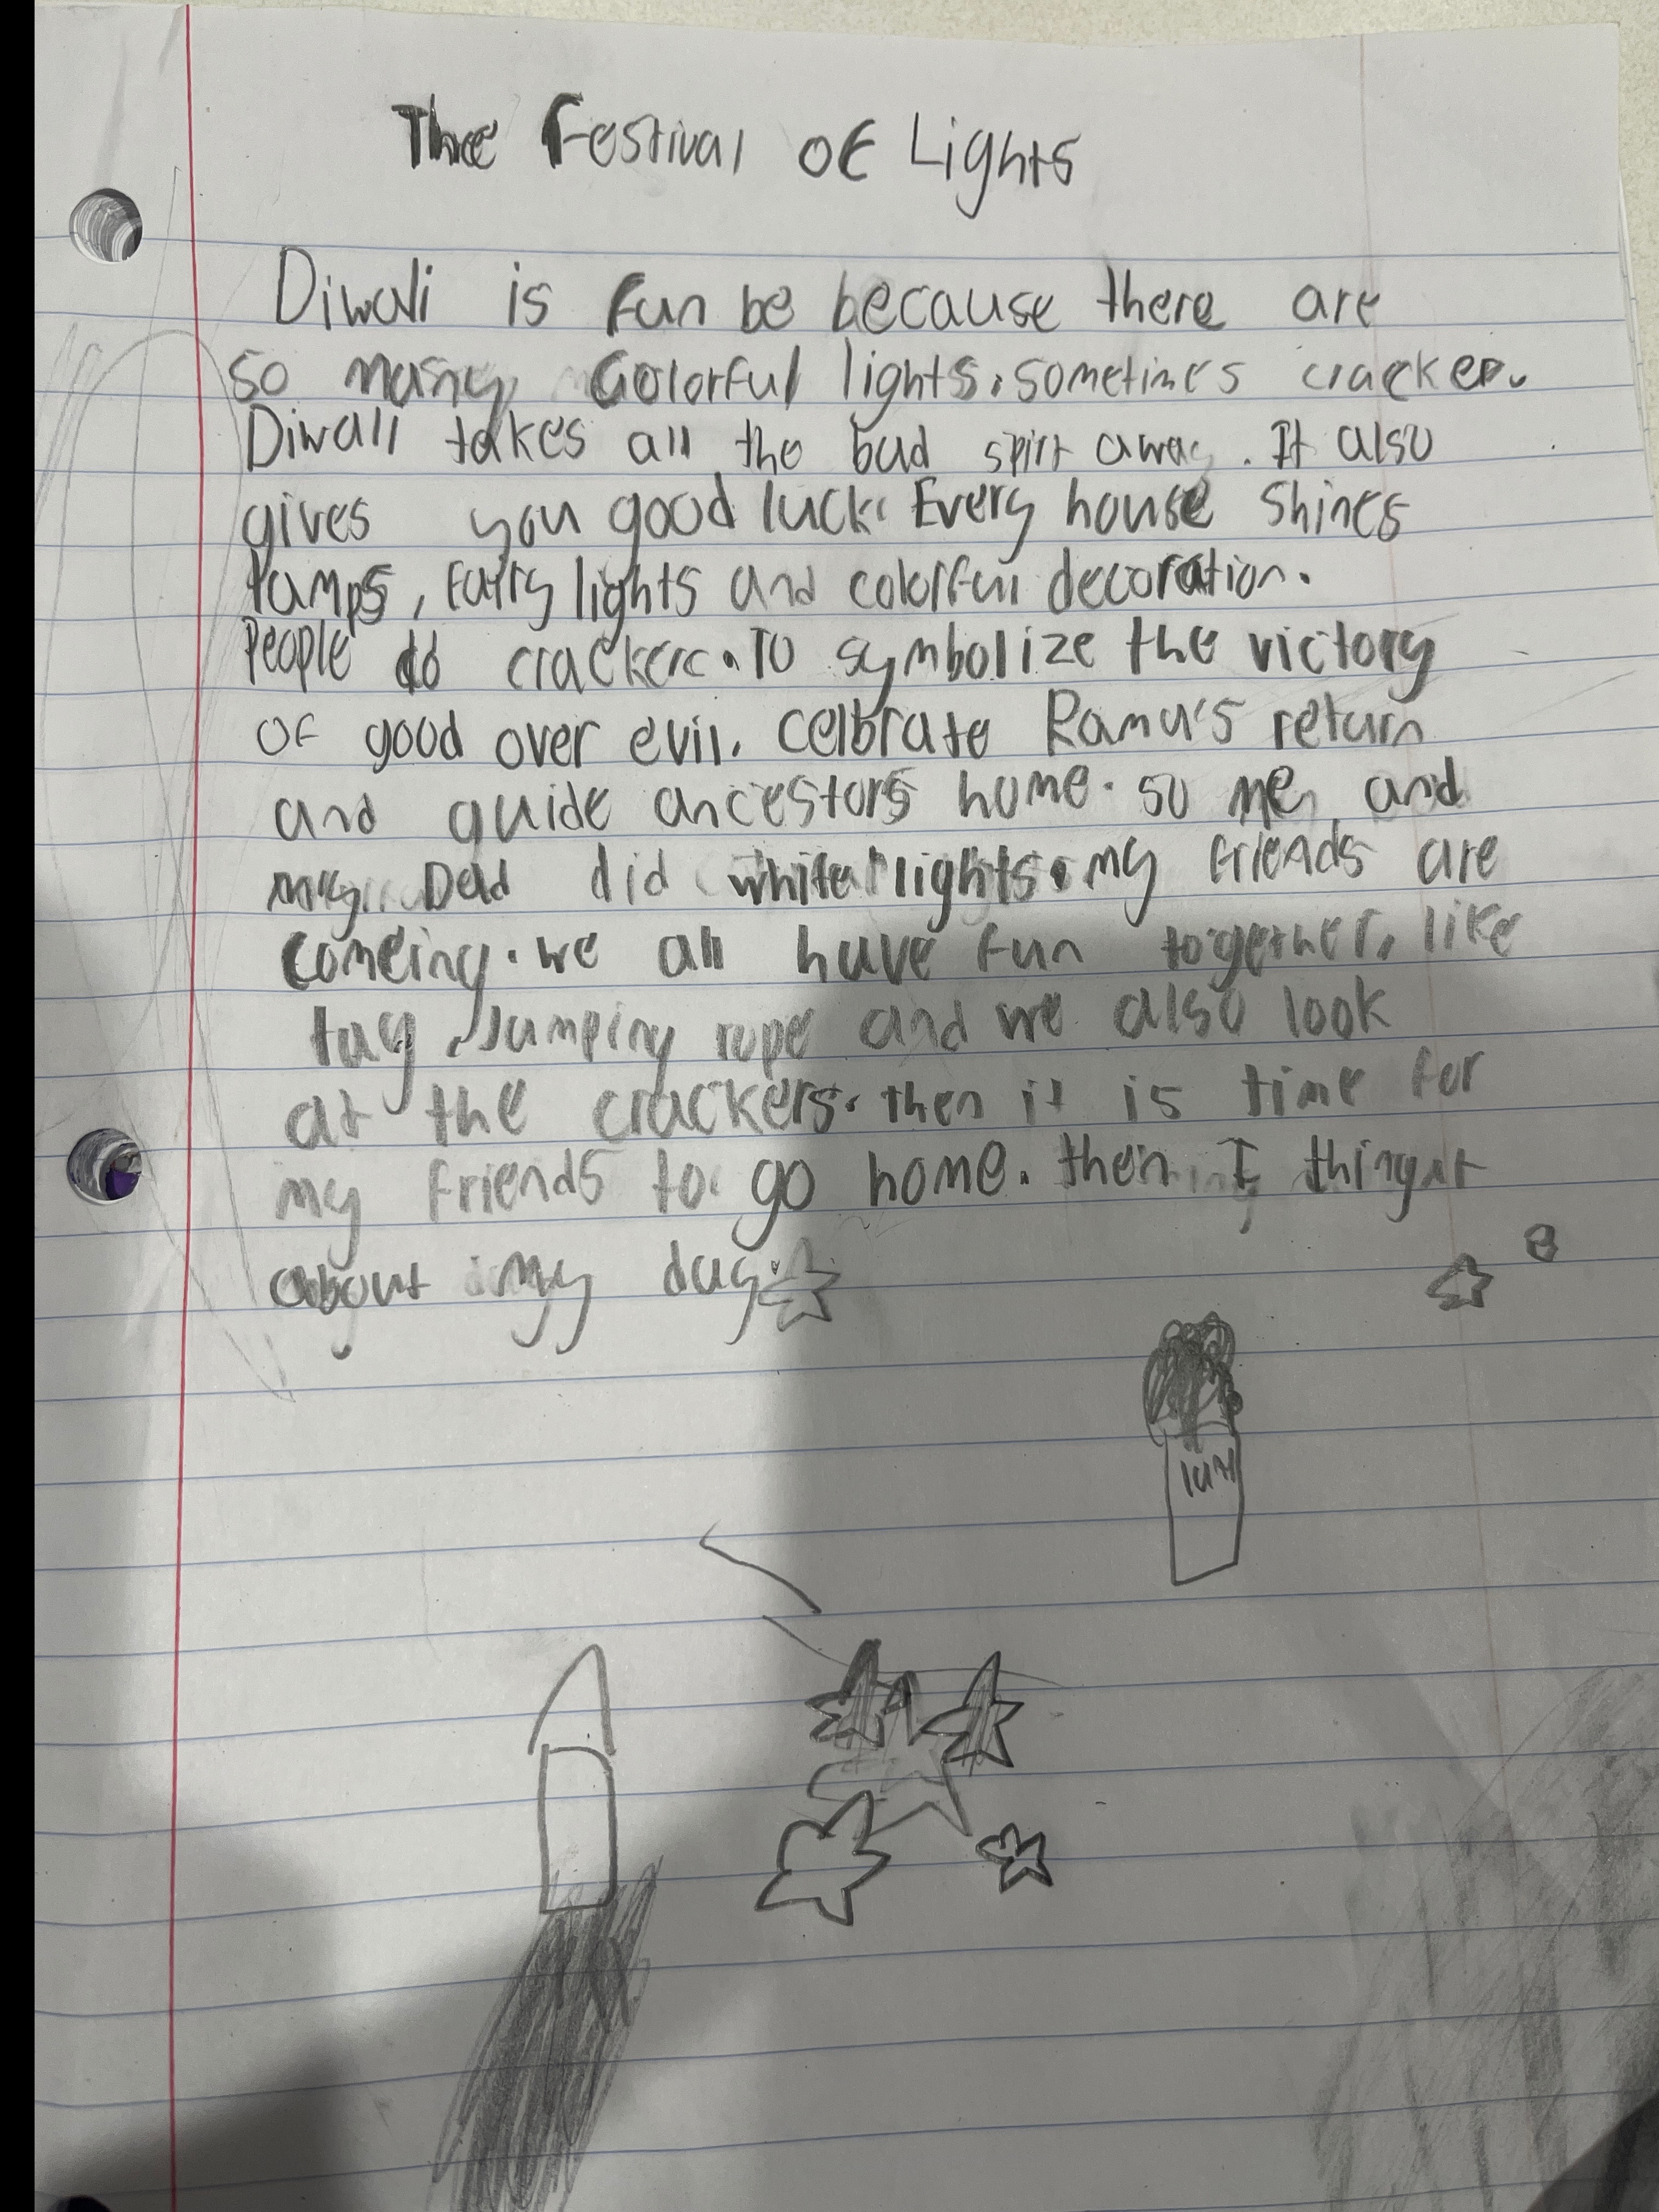 The Festival of Lights
Diwali is fun be because there are
so many colorful lights. sometimes cracker.
Diwali takes all the bad spirt away. It also
gives you good luck. Every house shines
lamps, fairy lights and colorful decoration.
People do crackers. To symbolize the victory
of good over evil. celbrate Rama's return
and guide ancestors home. so me and
my Dad did white lights. my friends are
comeing. we all have fun together, like
tag, Jumping rope and we also look
at the crackers. then it is time for
my friends to go home. then I
about my day.